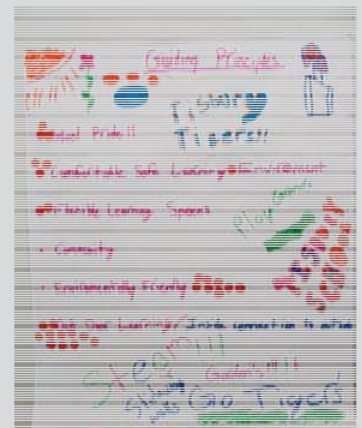 Guiding Principles
Tisbury
Tigers!!
School Pride!!
Comfortable Safe Learning Environment
Flexible Learning Spaces
Play Ground
• Community
• Environmentally Friendly
Out Door Learning / Inside connection to outside
Steam!!!
Garden's!!!!
Student
Go Tigers